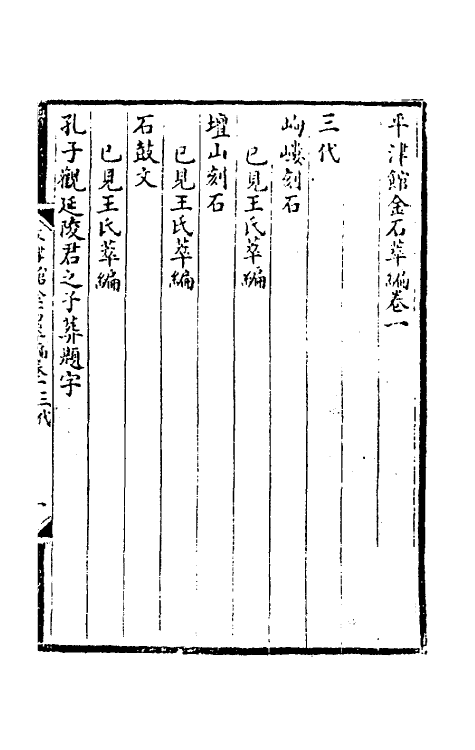 平津館金石萃編卷一
三代
岣嶁刻石
已見王氏萃編
壇山刻石
已見王氏萃編
石鼓文
已見王氏萃編
孔子觀延陵君之子葬題字
平津館金石萃編卷一 三代
一